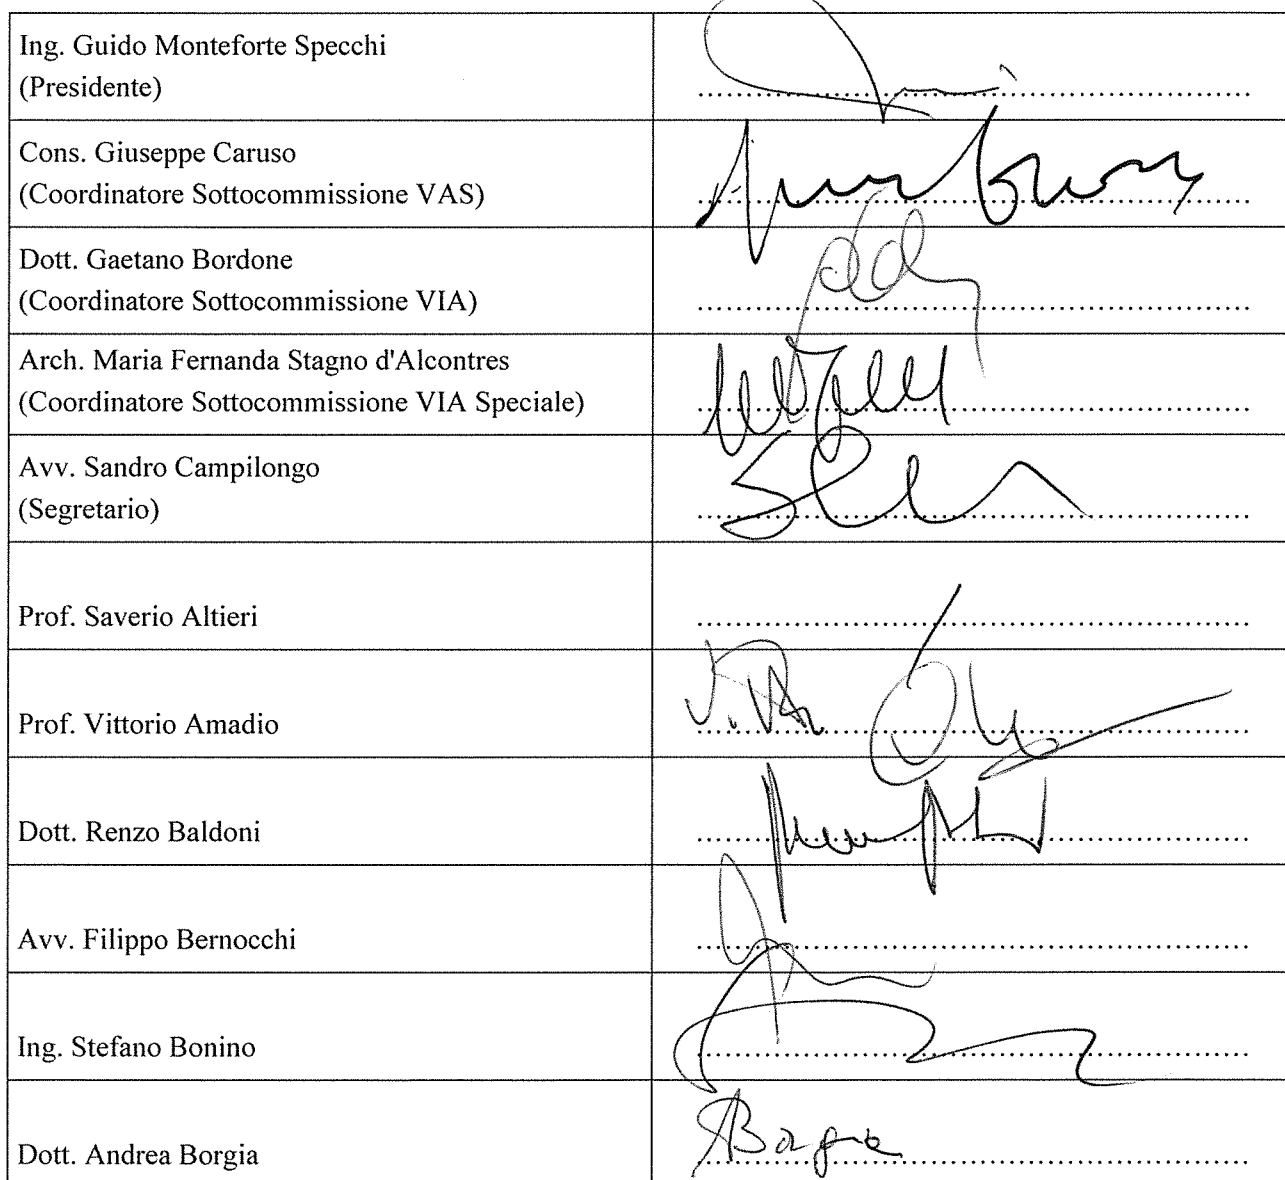 Ing. Guido Monteforte Specchi
(Presidente)
Cons. Giuseppe Caruso
(Coordinatore Sottocommissione VAS)
Dott. Gaetano Bordone
(Coordinatore Sottocommissione VIA)
Arch. Maria Fernanda Stagno d'Alcontres
(Coordinatore Sottocommissione VIA Speciale)
Avv. Sandro Campilongo
(Segretario)
Prof. Saverio Altieri
Prof. Vittorio Amadio
Dott. Renzo Baldoni
Avv. Filippo Bernocchi
Ing. Stefano Bonino
Dott. Andrea Borgia
ABorgia